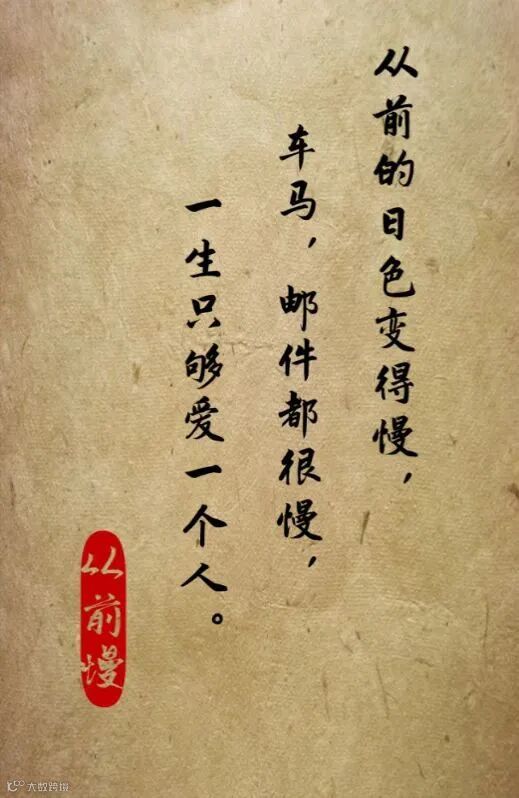 从前的日色变得慢，
车马，邮件都很慢，
一生只够爱一个人。
从前慢
大数跨境